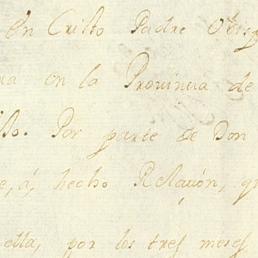 en Cristo Padre Obisp
na en la Provincia de
llo. Por parte de Don
e, á, hecho Relacion, q
ella, por los tres meses